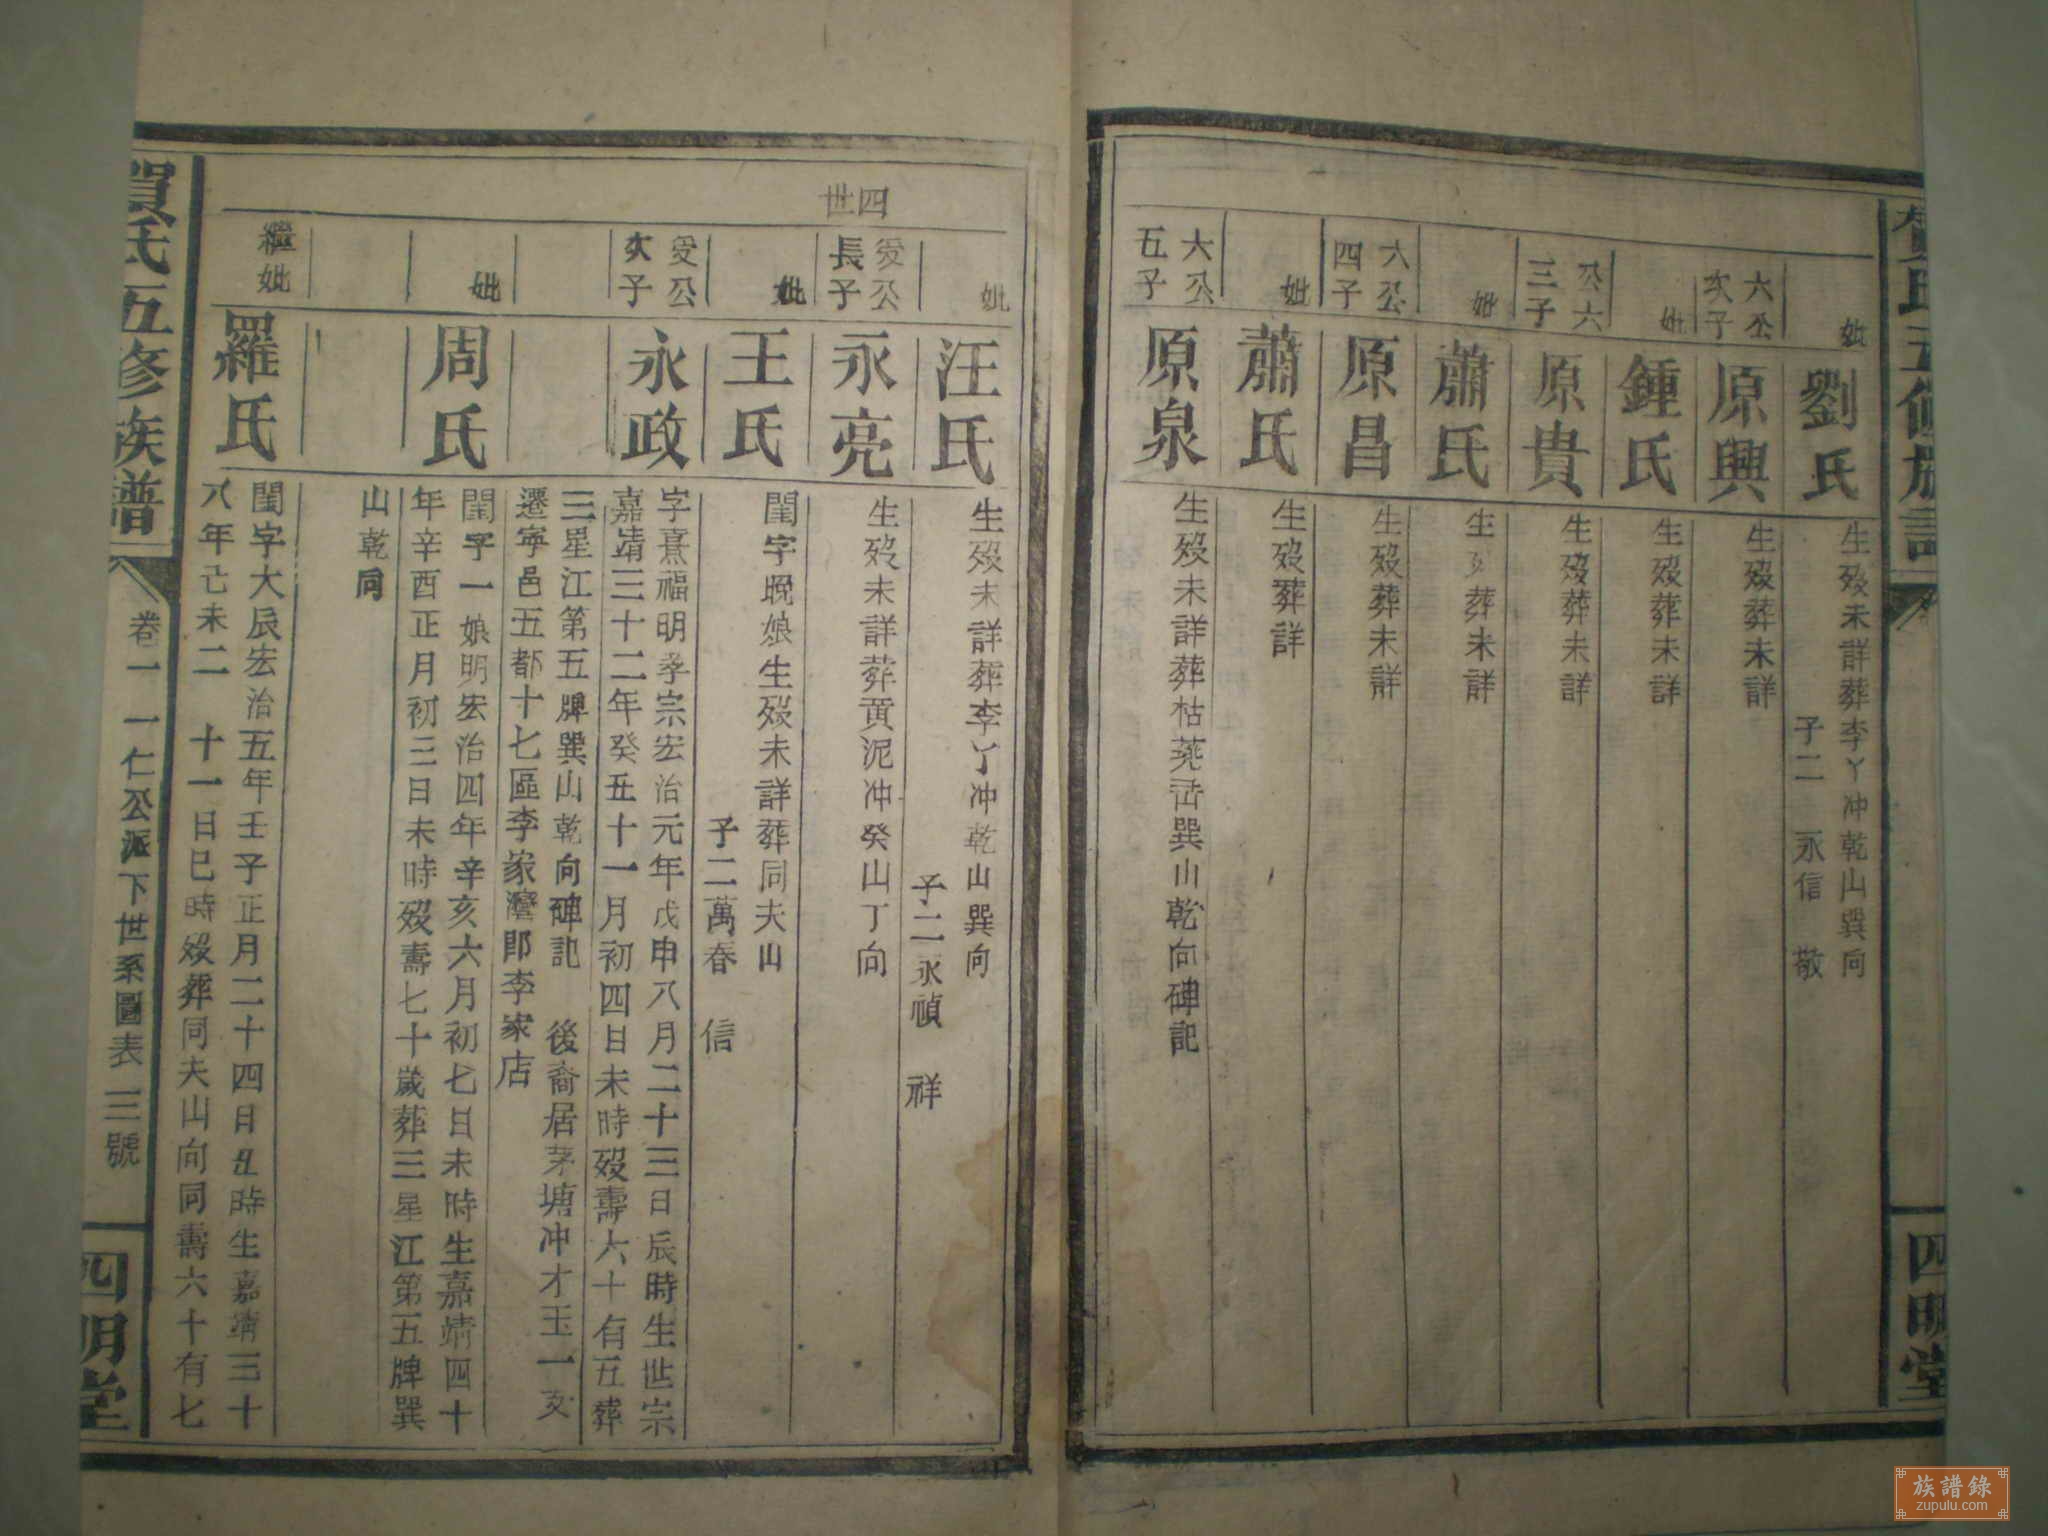 四明堂
妣
劉氏
生歿未詳葬李丫冲乾山巽向
子二 永信 敬
六公
次子
原興
生歿葬未詳
妣
鍾氏
生歿葬未詳
六公
三子
原貴
生歿葬未詳
妣
蕭氏
生歿葬未詳
六公
四子
原昌
生歿葬未詳
妣
蕭氏
生歿葬詳
六公
五子
原泉
生歿未詳葬枯茺嵒巽山乾向碑記
妣
汪氏
生歿未詳葬李丫冲乾山巽向
子二永禎 祥
四世
受公
長子
永亮
生歿未詳葬黄泥冲癸山丁向
妣
王氏
閨字晚娘生歿未詳葬同夫山
子二萬春 信
受公
次子
永政
字熹福明孝宗宏治元年戊申八月二十三日辰時生世宗
嘉靖三十二年癸丑十一月初四日未時歿壽六十有五葬
三星江第五牌巽山乾向碑記 後裔居茅塘冲才玉一支
遷寧邑五都十七區李家灣即李家店
妣
周氏
閨字一娘明宏治四年辛亥六月初七日未時生嘉靖四十
年辛酉正月初三日未時歿壽七十歲葬三星江第五牌巽
山乾向
繼妣
羅氏
閨字大辰宏治五年壬子正月二十四日丑時生嘉靖三十
八年己未二 十一日巳時歿葬同夫山向同壽六十有七
賀氏五修族譜
卷一 一仁公派下世系圖表 三號
四明堂
族譜錄
zupulu.com